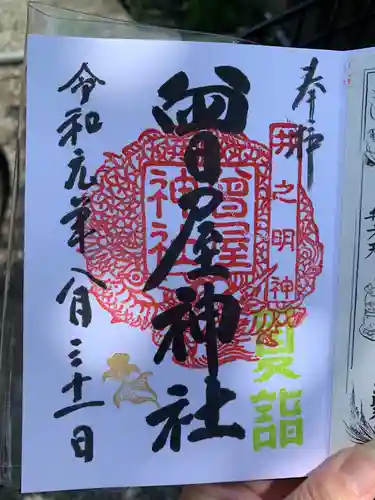 奉拝
井之明神
夏詣
曾屋神社
曾屋
神社
令和元年八月三十一日